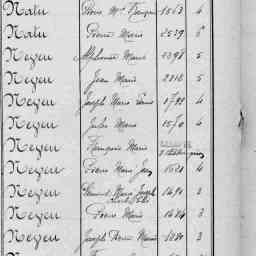 Natu Pierre Me François 1563 4
Natu Pierre Marie 2529 6
Neyen Alphonse Marie 2398 5
Neyen Jean Marie 2216 5
Neyen Joseph Marie Louis 1792 4
Neyen Jules Marie 1570 4
Neyen François Marie
Neyen Pierre Marie Jean 1621 4
Neyen Edmond Marie Joseph 1490 3
Neyen Pierre Marie 1624 3
Neyen Joseph Pierre Marie 1280 3
Neyen